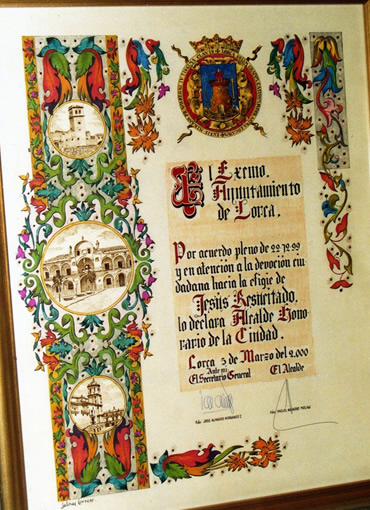 El Excmo.
Ayuntamiento
de Lorca.
Por acuerdo pleno de 22-12-99
y en atención a la devoción ciu
dadana hacia la efigie de
Jesús Resucitado,
lo declara Alcalde Hono
rario de la Ciudad.
Lorca 5 de Marzo del 2.000
Ante mi
El Secretario General El Alcalde
Fdo: MIGUEL NAVARRO MOLINA